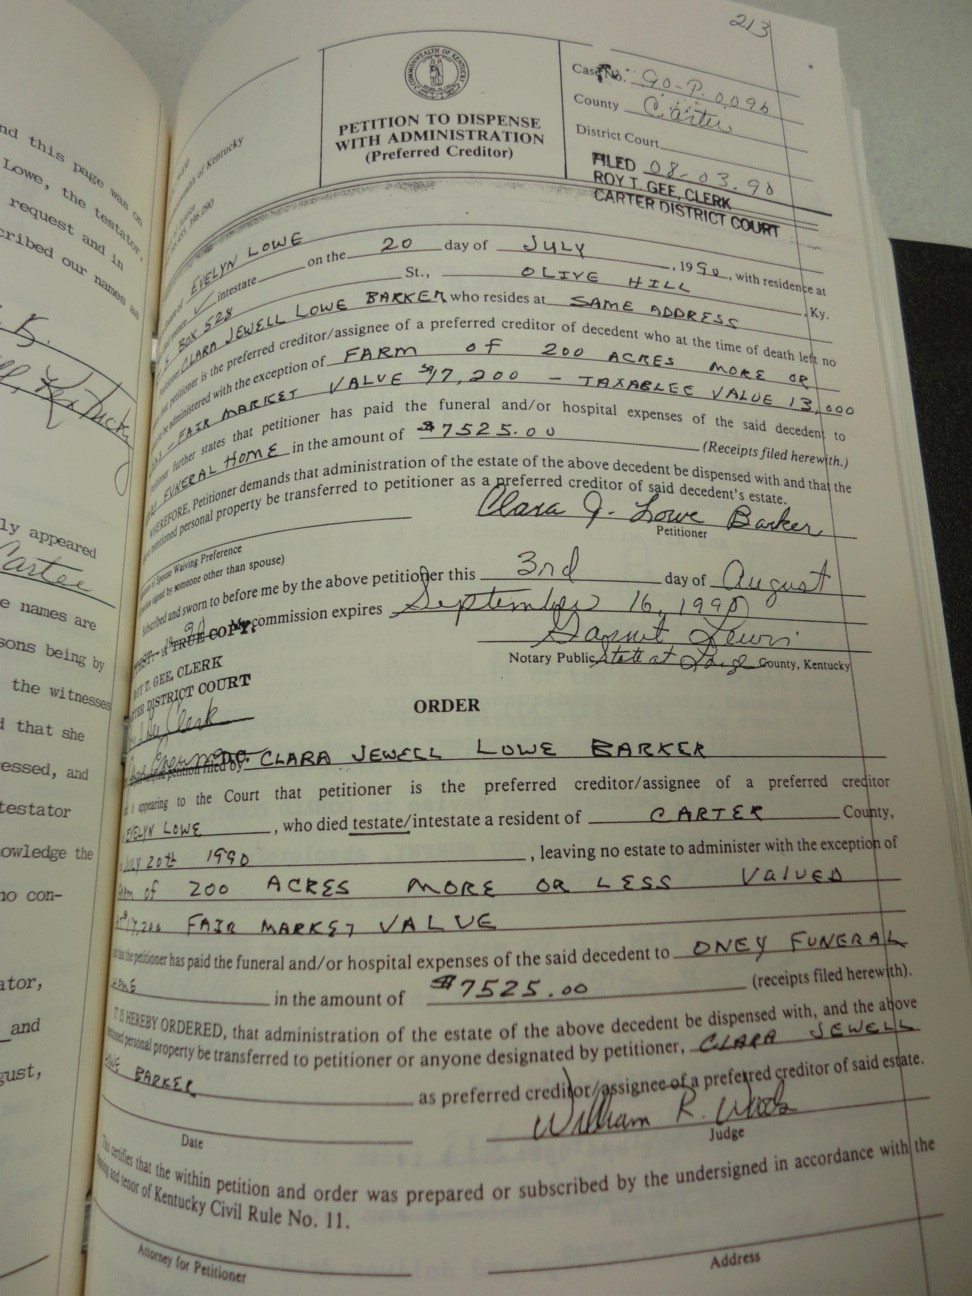 213
nd this page was on
Lowe, the testator,
request and in
cribed our names as
ly appeared
Cartee
e names are
sons being by
the witnesses
d that she
essed, and
testator
owledge the
no con-
ator,
and
gust,
COMMONWEALTH OF KENTUCKY
of Kentucky
PETITION TO DISPENSE
WITH ADMINISTRATION
(Preferred Creditor)
Case No. 90-P-0096
County Carter
District Court
FILED 08-03-90
ROY T. GEE, CLERK
CARTER DISTRICT COURT
EVELYN LOWE on the 20 day of JULY, 1990, with residence at
intestate
BOX 528 St., OLIVE HILL, Ky.
CLARA JEWELL LOWE BARKER who resides at SAME ADDRESS
that petitioner is the preferred creditor/assignee of a preferred creditor of decedent who at the time of death left no
to be administered with the exception of FARM OF 200 ACRES MORE OR
FAIR MARKET VALUE $17,200 - TAXABLEE VALUE 13,000
Petitioner further states that petitioner has paid the funeral and/or hospital expenses of the said decedent to
FUNERAL HOME in the amount of $7525.00 (Receipts filed herewith.)
WHEREFORE, Petitioner demands that administration of the estate of the above decedent be dispensed with and that the
mentioned personal property be transferred to petitioner as a preferred creditor of said decedent's estate.
Clara J. Lowe Barker
Petitioner
of Spouse Waiving Preference
signed by someone other than spouse)
Subscribed and sworn to before me by the above petitioner this 3rd day of August
1990 My commission expires September 16, 1990
TRUE COPY.
Notary Public, State at Large County, Kentucky
ROY T. GEE, CLERK
DISTRICT COURT
Clerk
D.C.
ORDER
petition filed by CLARA JEWELL LOWE BARKER
it appearing to the Court that petitioner is the preferred creditor/assignee of a preferred creditor
EVELYN LOWE, who died testate/intestate a resident of CARTER County,
July 20th 1990, leaving no estate to administer with the exception of
of 200 ACRES MORE OR LESS VALUED
$17,200 FAIR MARKET VALUE
that the petitioner has paid the funeral and/or hospital expenses of the said decedent to ONEY FUNERAL
in the amount of $7525.00 (receipts filed herewith).
IT IS HEREBY ORDERED, that administration of the estate of the above decedent be dispensed with, and the above
mentioned personal property be transferred to petitioner or anyone designated by petitioner, CLARA JEWELL
BARKER as preferred creditor/assignee of a preferred creditor of said estate.
William R. Woods
Date
Judge
This certifies that the within petition and order was prepared or subscribed by the undersigned in accordance with the
and tenor of Kentucky Civil Rule No. 11.
Attorney for Petitioner
Address